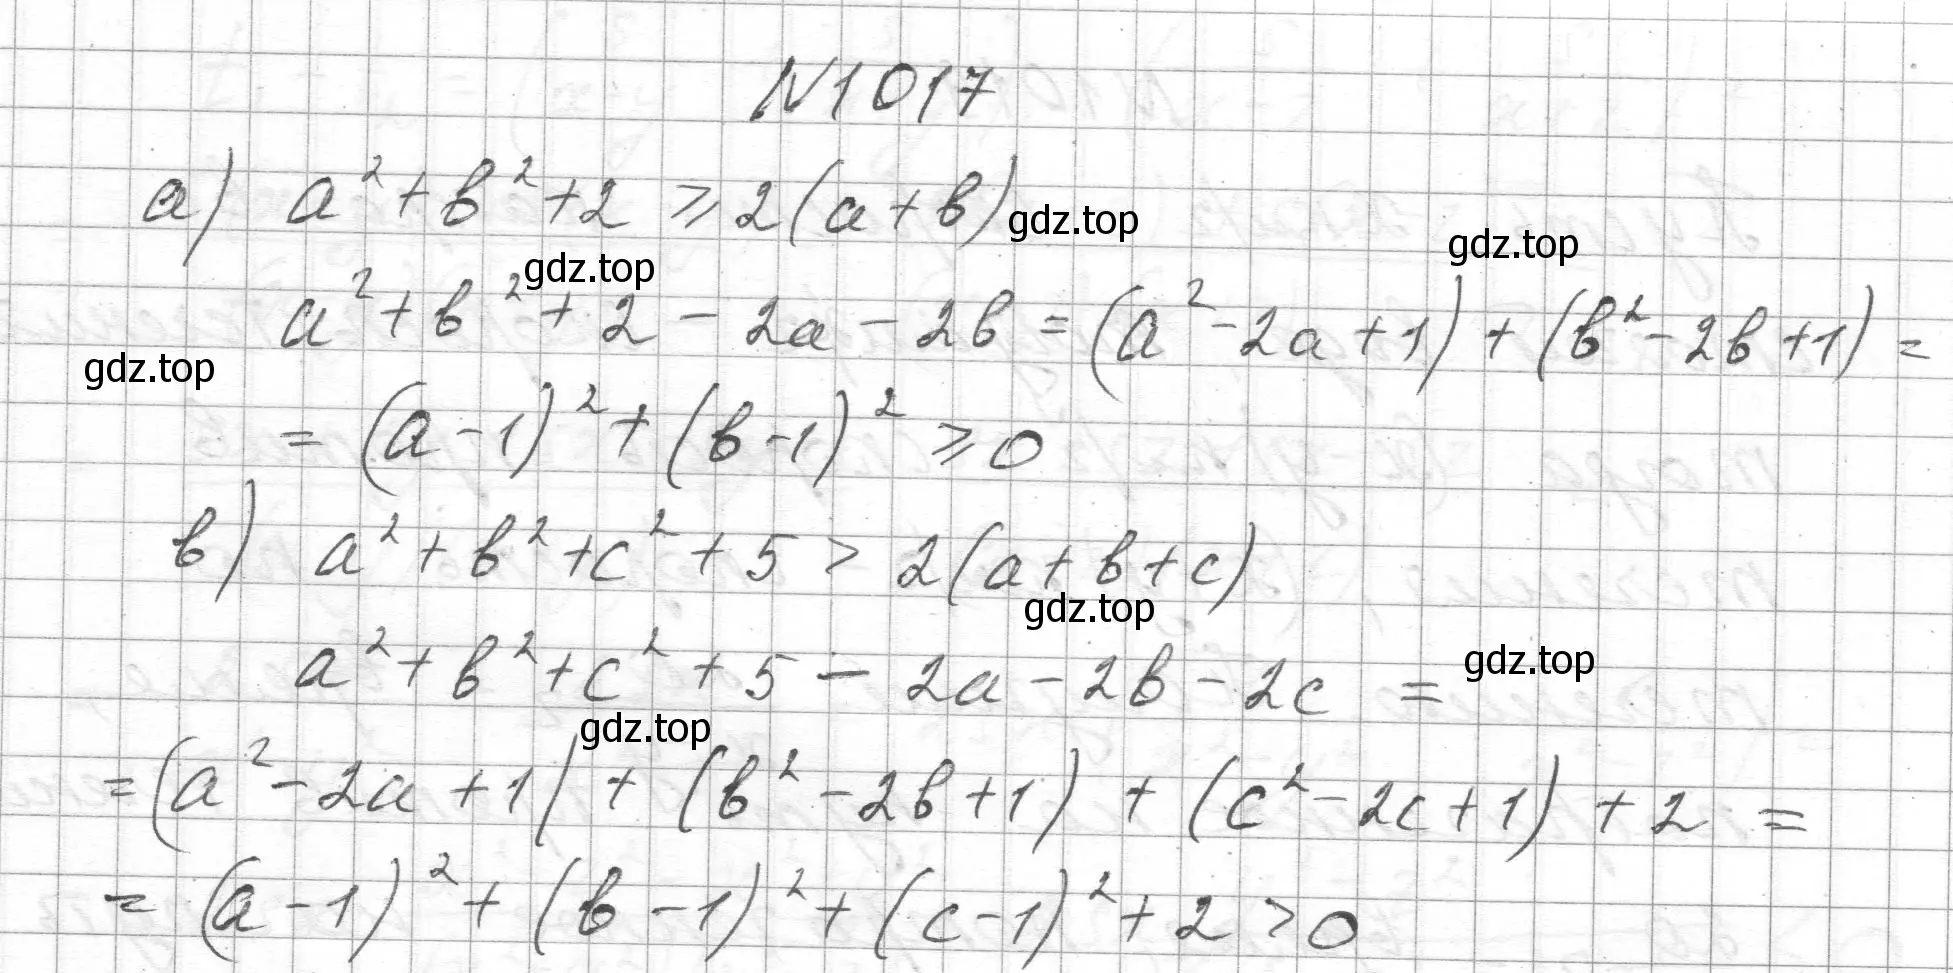 N1017
а) a² + b² + 2 ⩾ 2(a + b) gdz.top
gdz.top gdz.top
a² + b² + 2 - 2a - 2b = (a² - 2a + 1) + (b² - 2b + 1) =
gdz.top
= (a - 1)² + (b - 1)² ⩾ 0
в) a² + b² + c² + 5 > 2(a + b + c)
gdz.top
a² + b² + c² + 5 - 2a - 2b - 2c = gdz.top
gdz.top
= (a² - 2a + 1) + (b² - 2b + 1) + (c² - 2c + 1) + 2 =
= (a - 1)² + (b - 1)² + (c - 1)² + 2 > 0